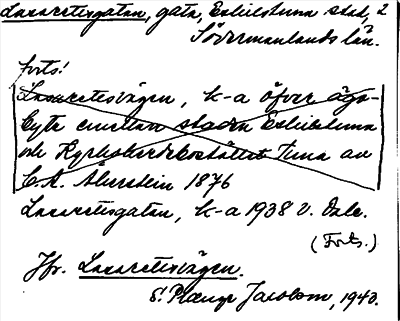 Lasarettsgatan, gata, Eskilstuna stad, 2
Södermanlands län.
forts!
Lasarettsvägen, k-a öfver ägo-
byte emellan staden Eskilstuna
och Kyrkoherdebostället Tuna av
C. A. Åkerstein 1876
Lasarettsgatan, k-a 1938 v.
(Forts.)
Jfr. Lasarettsvägen.
S. Jacobson, 1940.